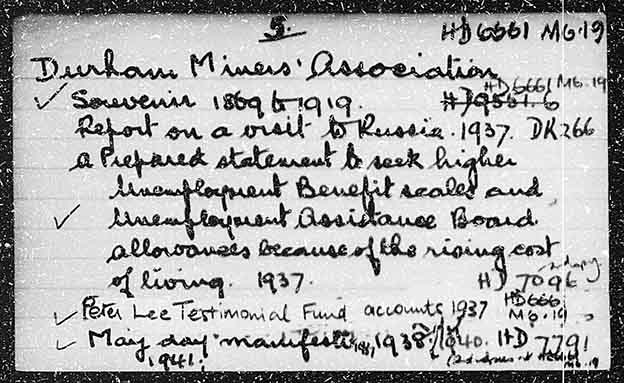 5.
HD6661 M6.19
Durham Miners' Association
✓ Souvenir 1869 to 1919. HD9551.6 HD6661 M6.19
Report on a visit to Russia. 1937. DK266
a Prepared statement to seek higher
Unemployment Benefit scales and
✓ Unemployment Assistance Board
allowances because of the rising cost
of living. 1937. HD 7096
✓ Peter Lee Testimonial Fund accounts 1937 HD6661 M6.19
✓ May day manifesto 1938. 1940. HD 7791
1941. M6.19